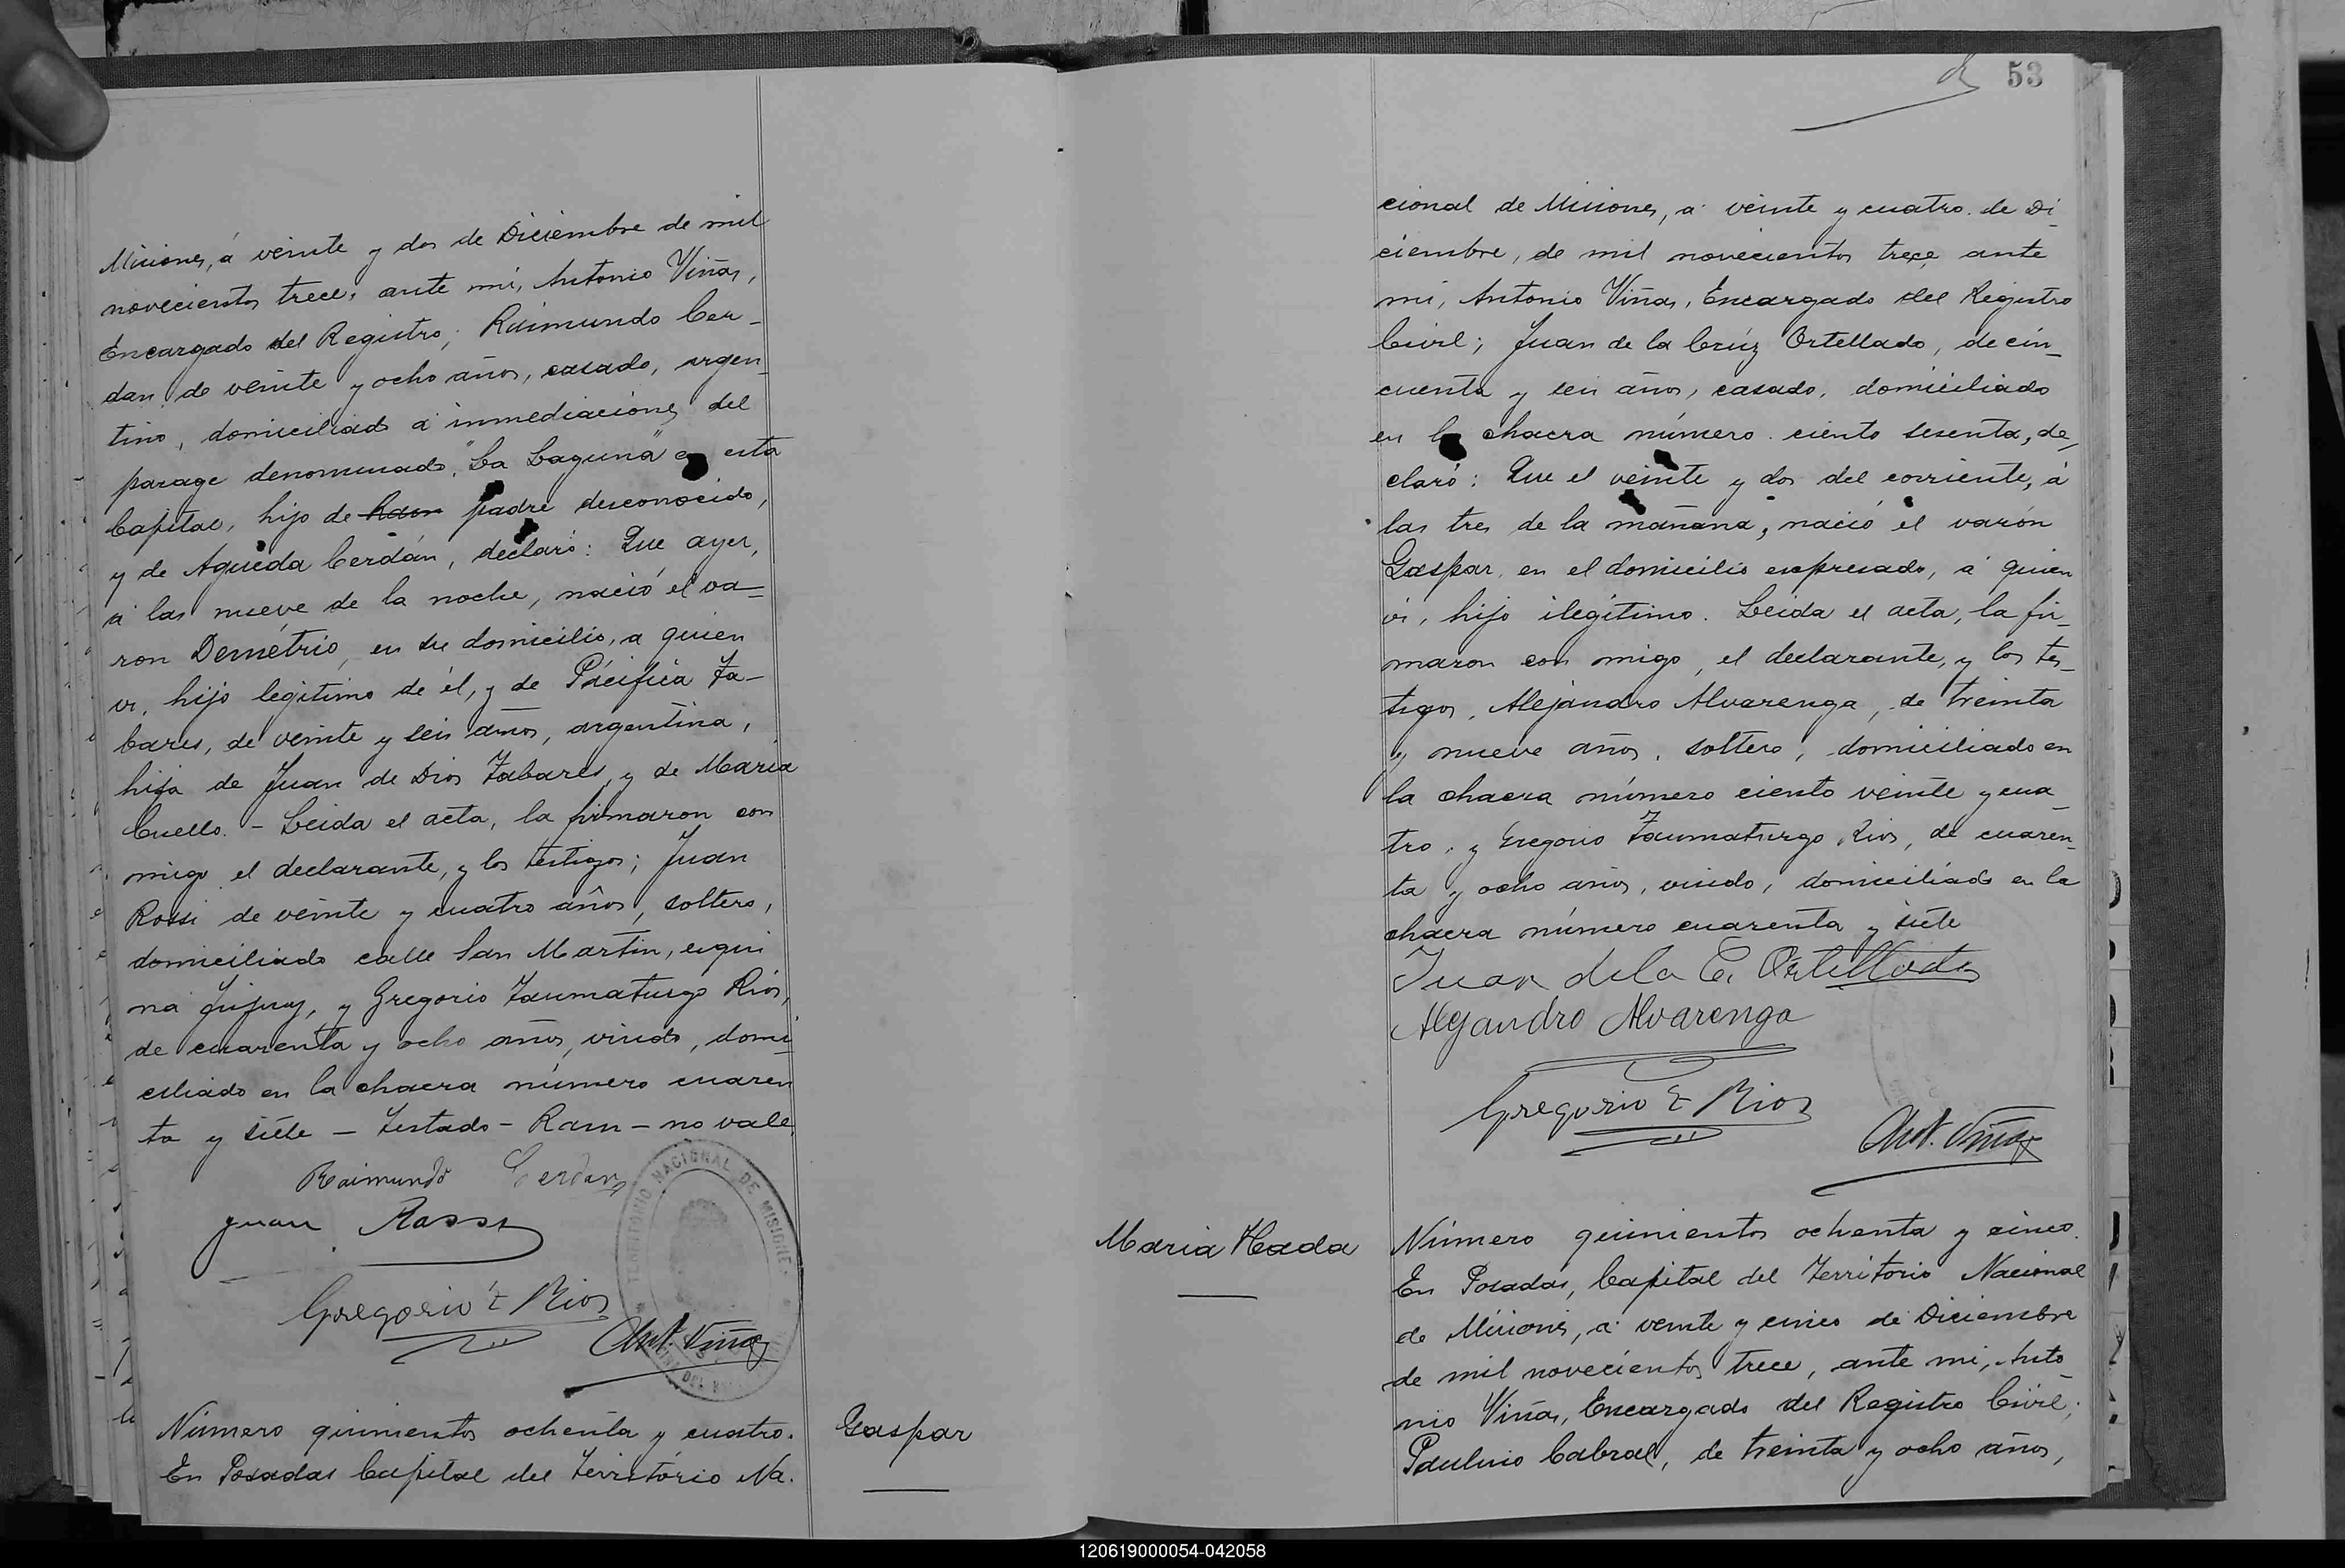 Misiones, á veinte y dos de Diciembre de mil
novecientos trece, ante mi, Antonio Viñas,
Encargado del Registro; Raimundo Cer-
dan, de veinte y ocho años, casado, argen-
tino, domiciliado á inmediaciones del
parage denominado "La Laguna" en esta
Capital, hijo de Ram padre desconocido,
y de Agueda Cerdán, declaró: Que ayer,
á las nueve de la noche, nació el va-
ron Demétrio, en su domicilio, a quien
vi, hijo legitimo de él, y de Pácifica Ta-
bares, de veinte y seis años, argentina,
hija de Juan de Dios Tabares, y de Maria
Cuello. - Leida el acta, la firmaron con
migo el declarante, y los testigos; Juan
Rossi de veinte y cuatro años, soltero,
domiciliado calle San Martin, esqui
na Jujuy, y Gregorio Taumaturgo Rios,
de cuarenta y ocho años, viudo, domi-
ciliado en la chacra número cuaren
ta y siete - Testado - Ram - no vale.
Raimundo Cerdan
Juan Rossi
Gregorio T Rios
Ant. Viñas
TERRITORIO NACIONAL DE MISIONES
Número quinientos ochenta y cuatro.
En Posadas Capital del Território Na.
Gaspar
53
cional de Misiones, a veinte y cuatro de Di-
ciembre, de mil novecientos trece ante
mi, Antonio Viñas, Encargado del Registro
Civil; Juan de la Crúz Ortellado, de cin-
cuenta y seis años, casado, domiciliado
en la chacra número ciento sesenta, de-
claró: Que el veinte y dos del corriente, á
las tres de la mañana, nació el varón
Gaspar, en el domicilio expresado, á quien
vi, hijo ilegítimo. Leida el acta, la fir-
maron con migo, el declarante, y los tes-
tigos, Alejandro Alvarenga, de treinta
y nueve años, soltero, domiciliado en
la chacra número ciento veinte y cua-
tro, y Gregorio Taumaturgo Rios, de cuaren-
ta y ocho años, viudo, domiciliado en la
chacra número cuarenta y siete
Juan de la C. Ortellado
Alejandro Alvarenga
Gregorio T Rios
Ant. Viñas
Maria Hada
Número quinientos ochenta y cinco.
En Posadas, Capital del Territorio Nacional
de Misiones, a veinte y cinco de Diciembre
de mil novecientos trece, ante mi, Anto
nio Viñas, Encargado del Registro Civil;
Paulino Cabral, de treinta y ocho años,
120619000054-042058